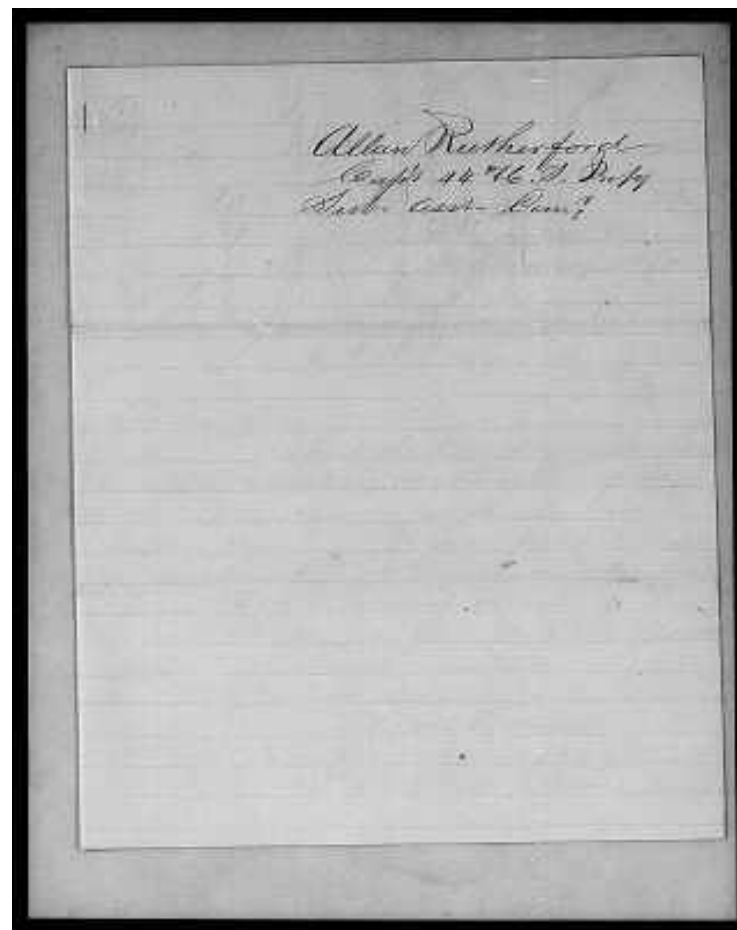 Allan Rutherford
Capt 44" U. S. Infy
Sub. Asst. Com.